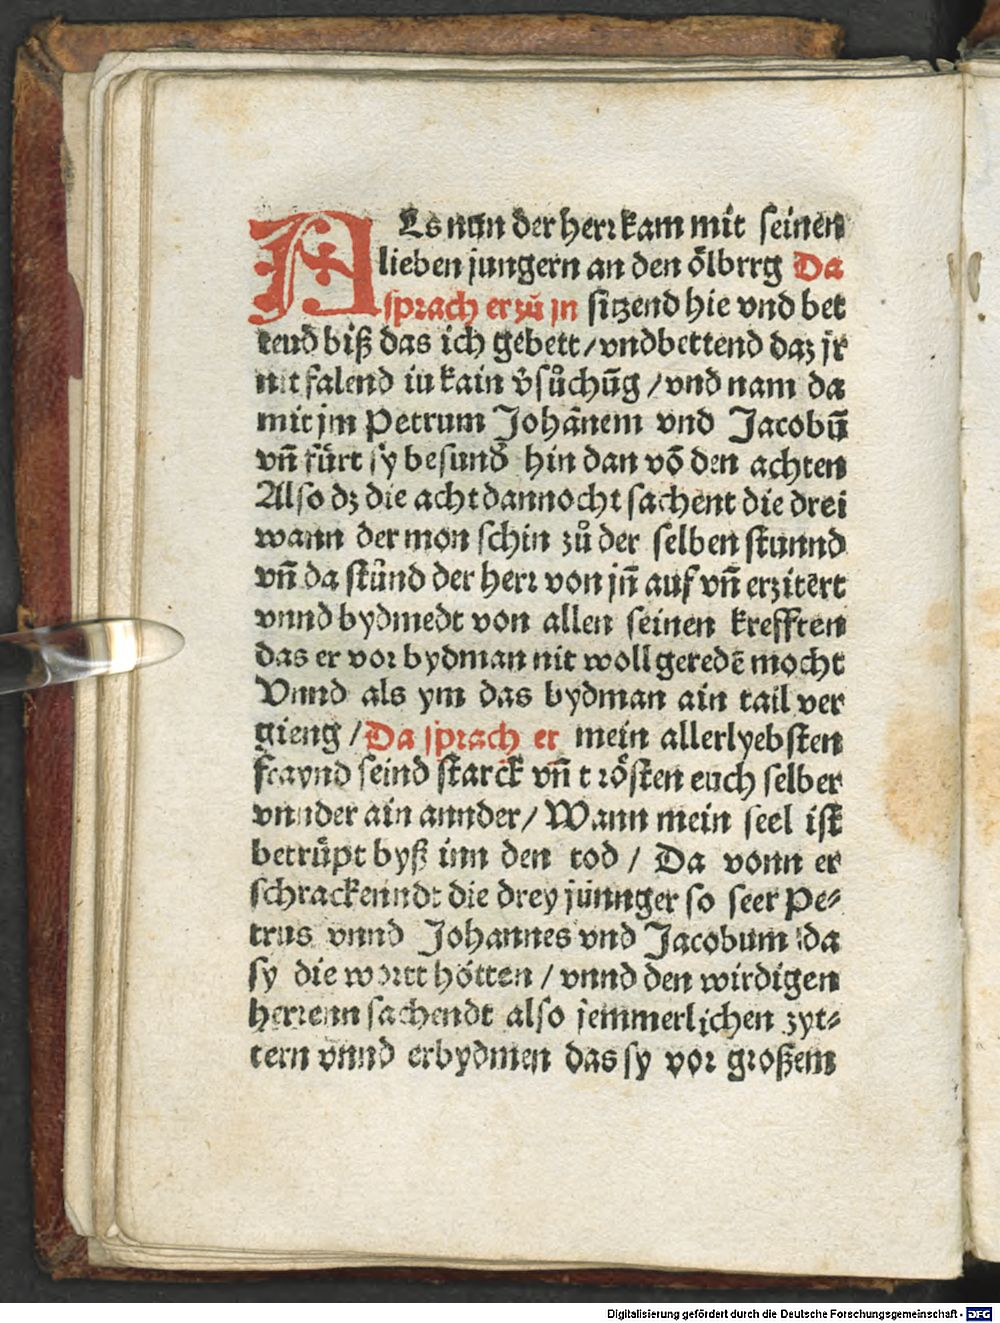 ALs nun der herr kam mit seinen
lieben jungern an den ölbrrg Da
sprach er zů jn sitzend hie vnd bet
tend biß das ich gebett/vndbettend daz jr
nit falend in kain v̄sůchūg /vnd nam da
mit jm Petrum Johānem vnd Jacobū
vn̄ fürt sy besund̕ hin dan vō den achten
Also dz die acht dannocht sachent die drei
wann der mon schin zů der selben stunnd
vn̄ da stůnd der herr von jn̄ auf vn̄ erzitert
vnnd bydmedt von allen seinen krefften
das er vor bydman nit woll geredē mocht
Vnnd als ym das bydman ain tail ver
gieng /Da sprach er mein allerlyebsten
fraynd seind starck vn̄ trösten euch selber
vnnder ain annder/ Wann mein seel ist
betrüpt byß inn den tod / Da vonn er
schrackenndt die drey jünnger so seer Pe⸗
trus vnnd Johannes vnd Jacobum da
sy die wortt hötten / vnnd den wirdigen
herrenn sachendt also jemmerlichen zyt⸗
tern vnnd erbydmen das sy vor großem
Digitalisierung gefördert durch die Deutsche Forschungsgemeinschaft - DFG